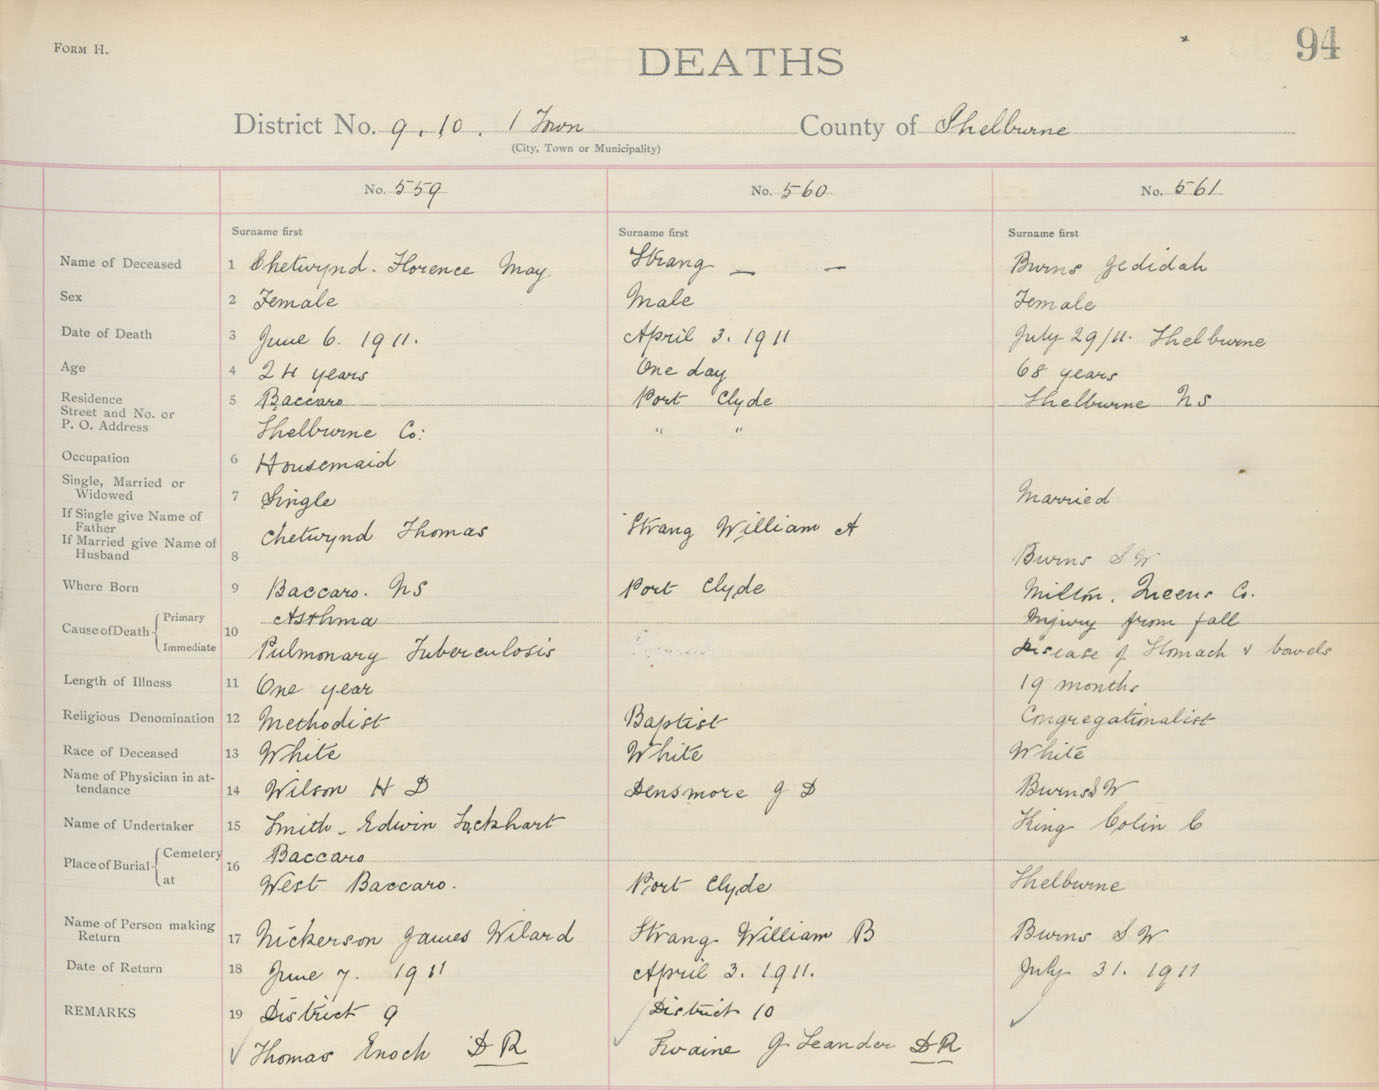 FORM H.
94
DEATHS
District No. 9, 10. 1 Town County of Shelburne
(City, Town or Municipality)
No. 559 No. 560 No. 561
Surname first Surname first Surname first
Name of Deceased 1 Chetwynd. Florence May Strang — — Burns Jedidah
Sex 2 Female Male Female
Date of Death 3 June 6. 1911. April 3. 1911 July 29/11. Shelburne
Age 4 24 years One day 68 years
Residence 5 Baccaro Port Clyde Shelburne NS
Street and No. or
P. O. Address Shelburne Co: " "
Occupation 6 Housemaid
Single, Married or
Widowed 7 Single Married
If Single give Name of
Father Chetwynd Thomas Strang William A
If Married give Name of
Husband 8 Burns S W
Where Born 9 Baccaro. NS Port Clyde Milton, Queens Co.
Cause of Death { Primary 10 Asthma Injury from fall
Immediate Pulmonary Tuberculosis Disease of Stomach & bowels
Length of Illness 11 One year 19 months
Religious Denomination 12 Methodist Baptist Congregationalist
Race of Deceased 13 White White White
Name of Physician in at-
tendance 14 Wilson H D Densmore J D Burns S W
Name of Undertaker 15 Smith - Edwin Lockhart King Colin C
Place of Burial { Cemetery 16 Baccaro
at West Baccaro. Port Clyde Shelburne
Name of Person making
Return 17 Nickerson James Wilard Strang William B Burns S W
Date of Return 18 June 7. 1911 April 3. 1911. July 31. 1911
REMARKS 19 District 9 District 10
✓ Thomas Enoch D R Swaine J Leander D R ✓